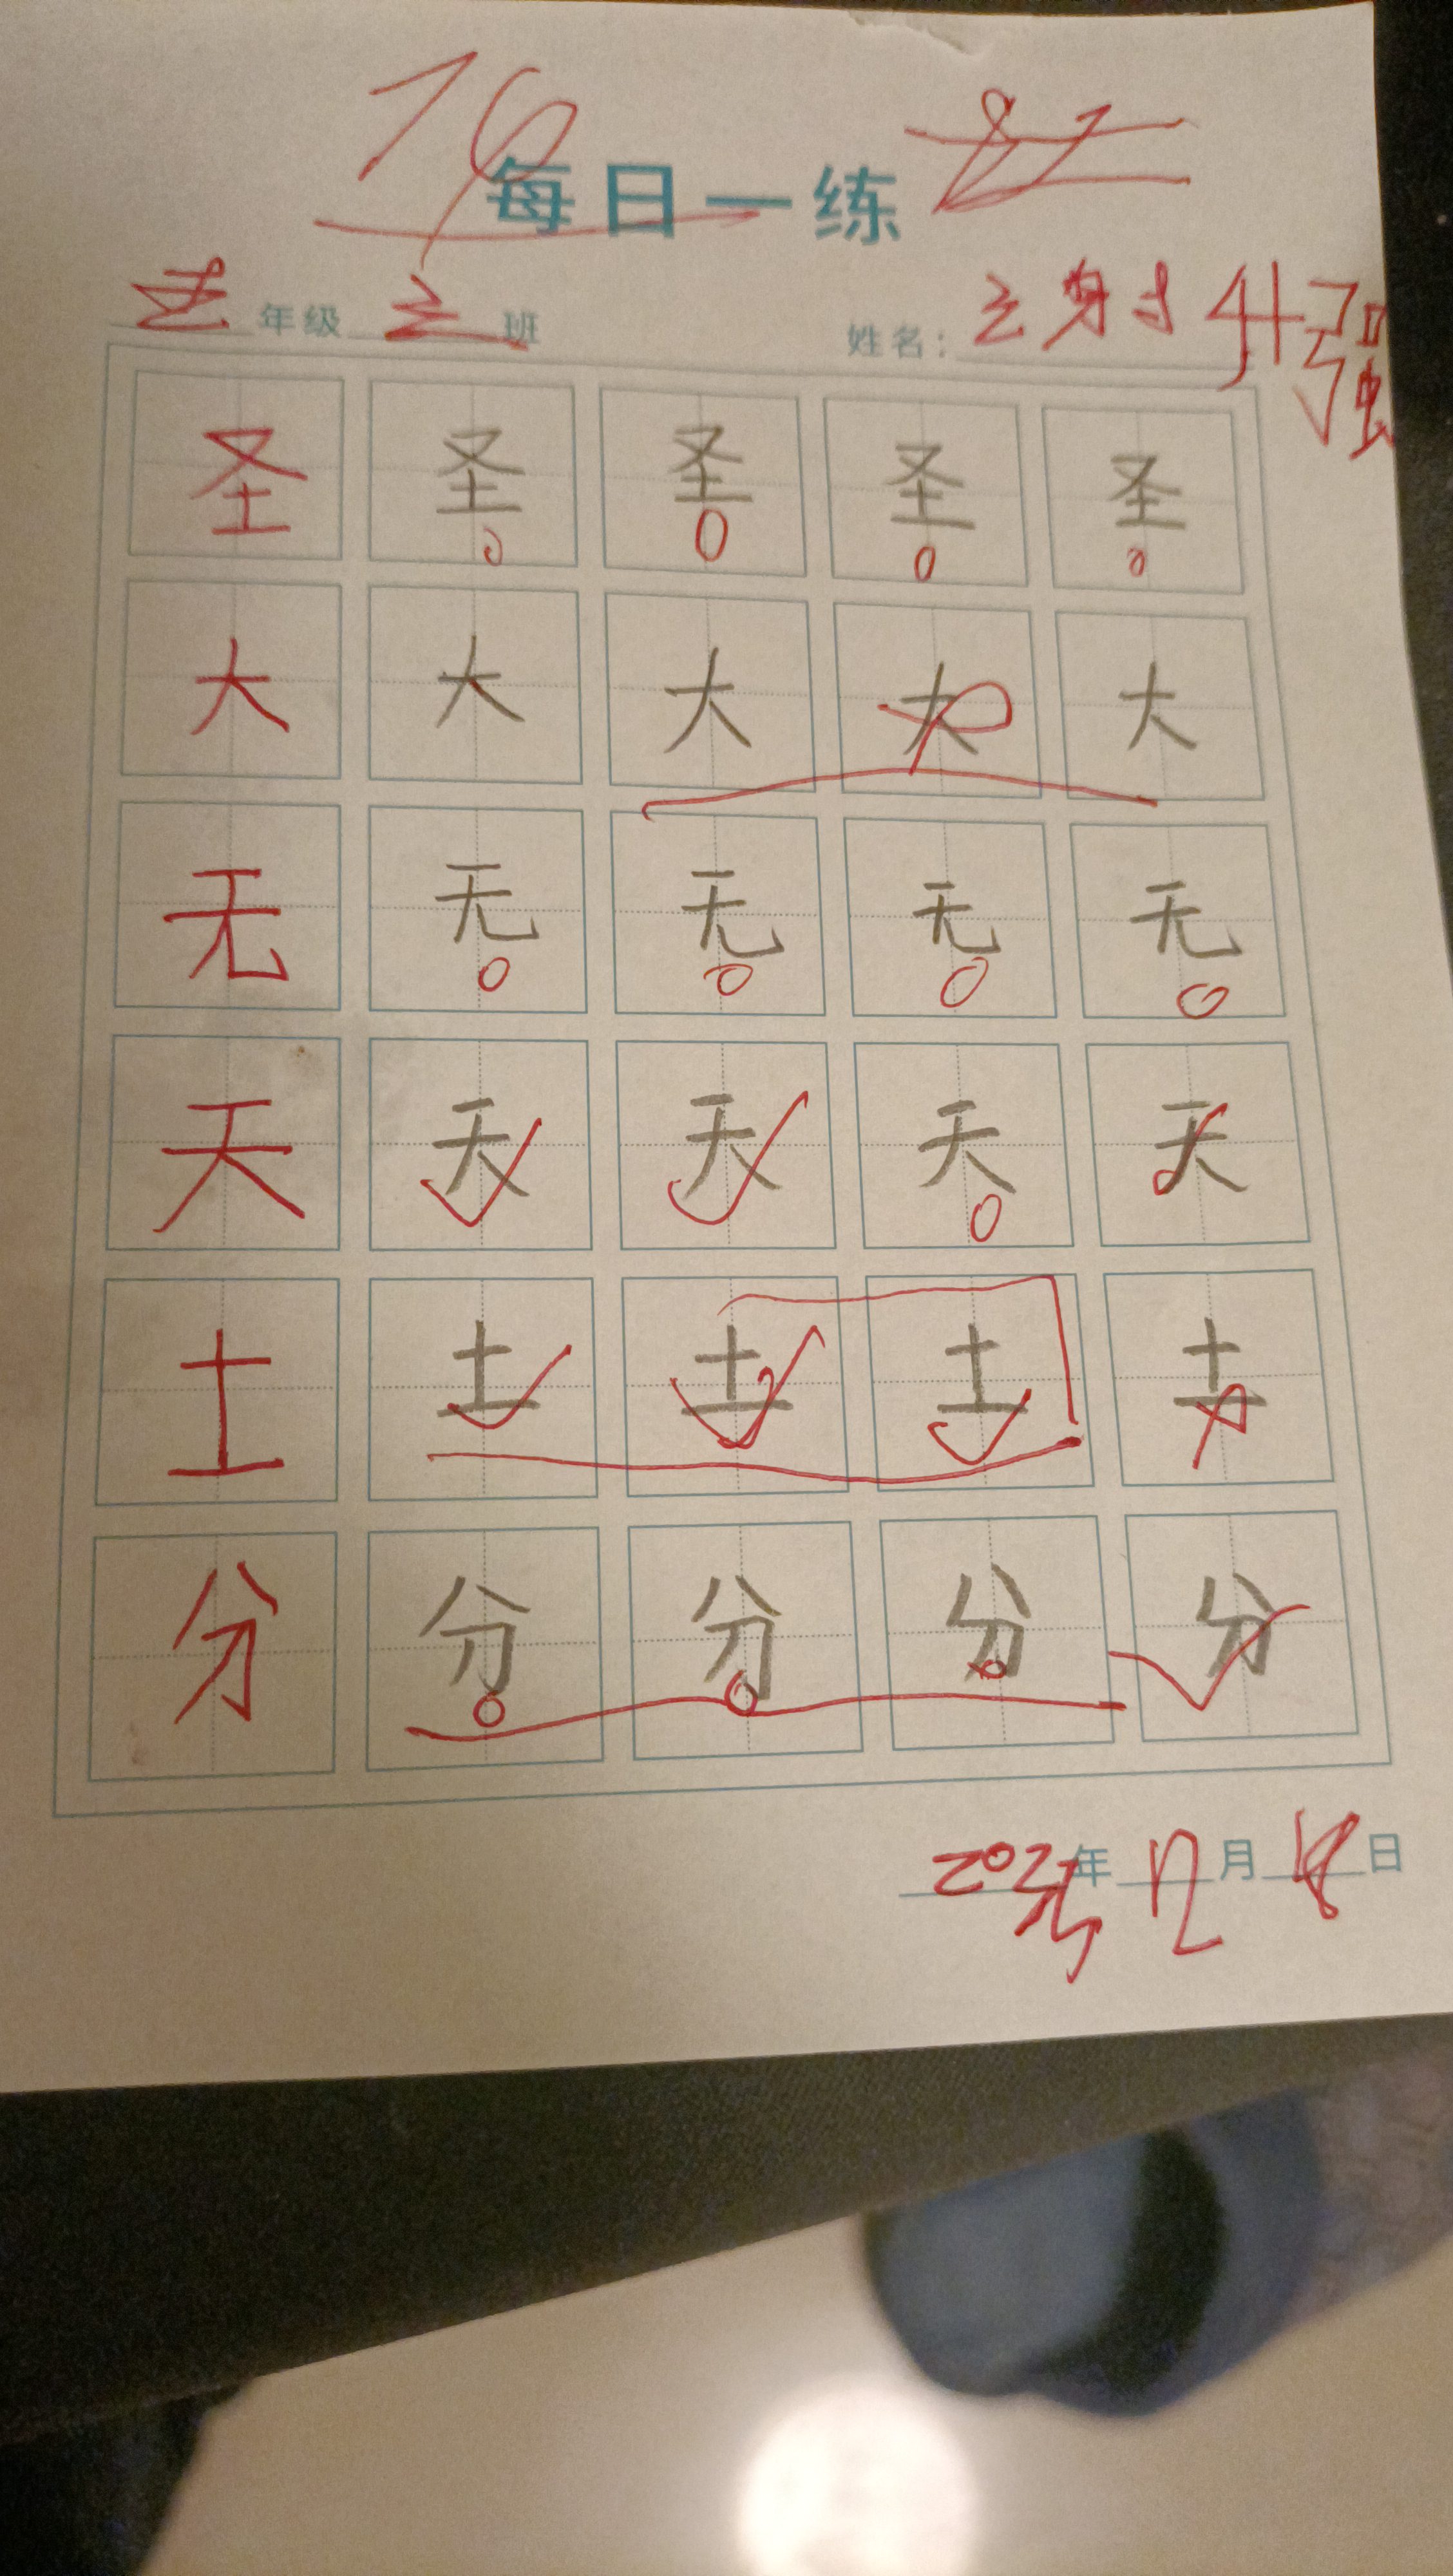 76
每日一练
年级 三 班 姓名：
圣 圣 圣 圣 圣
大 大 大 大 大
无 无 无 无 无
天 天 天 天 天
土 土 土 土 土
分 分 分 分 分
年 12 月 18 日